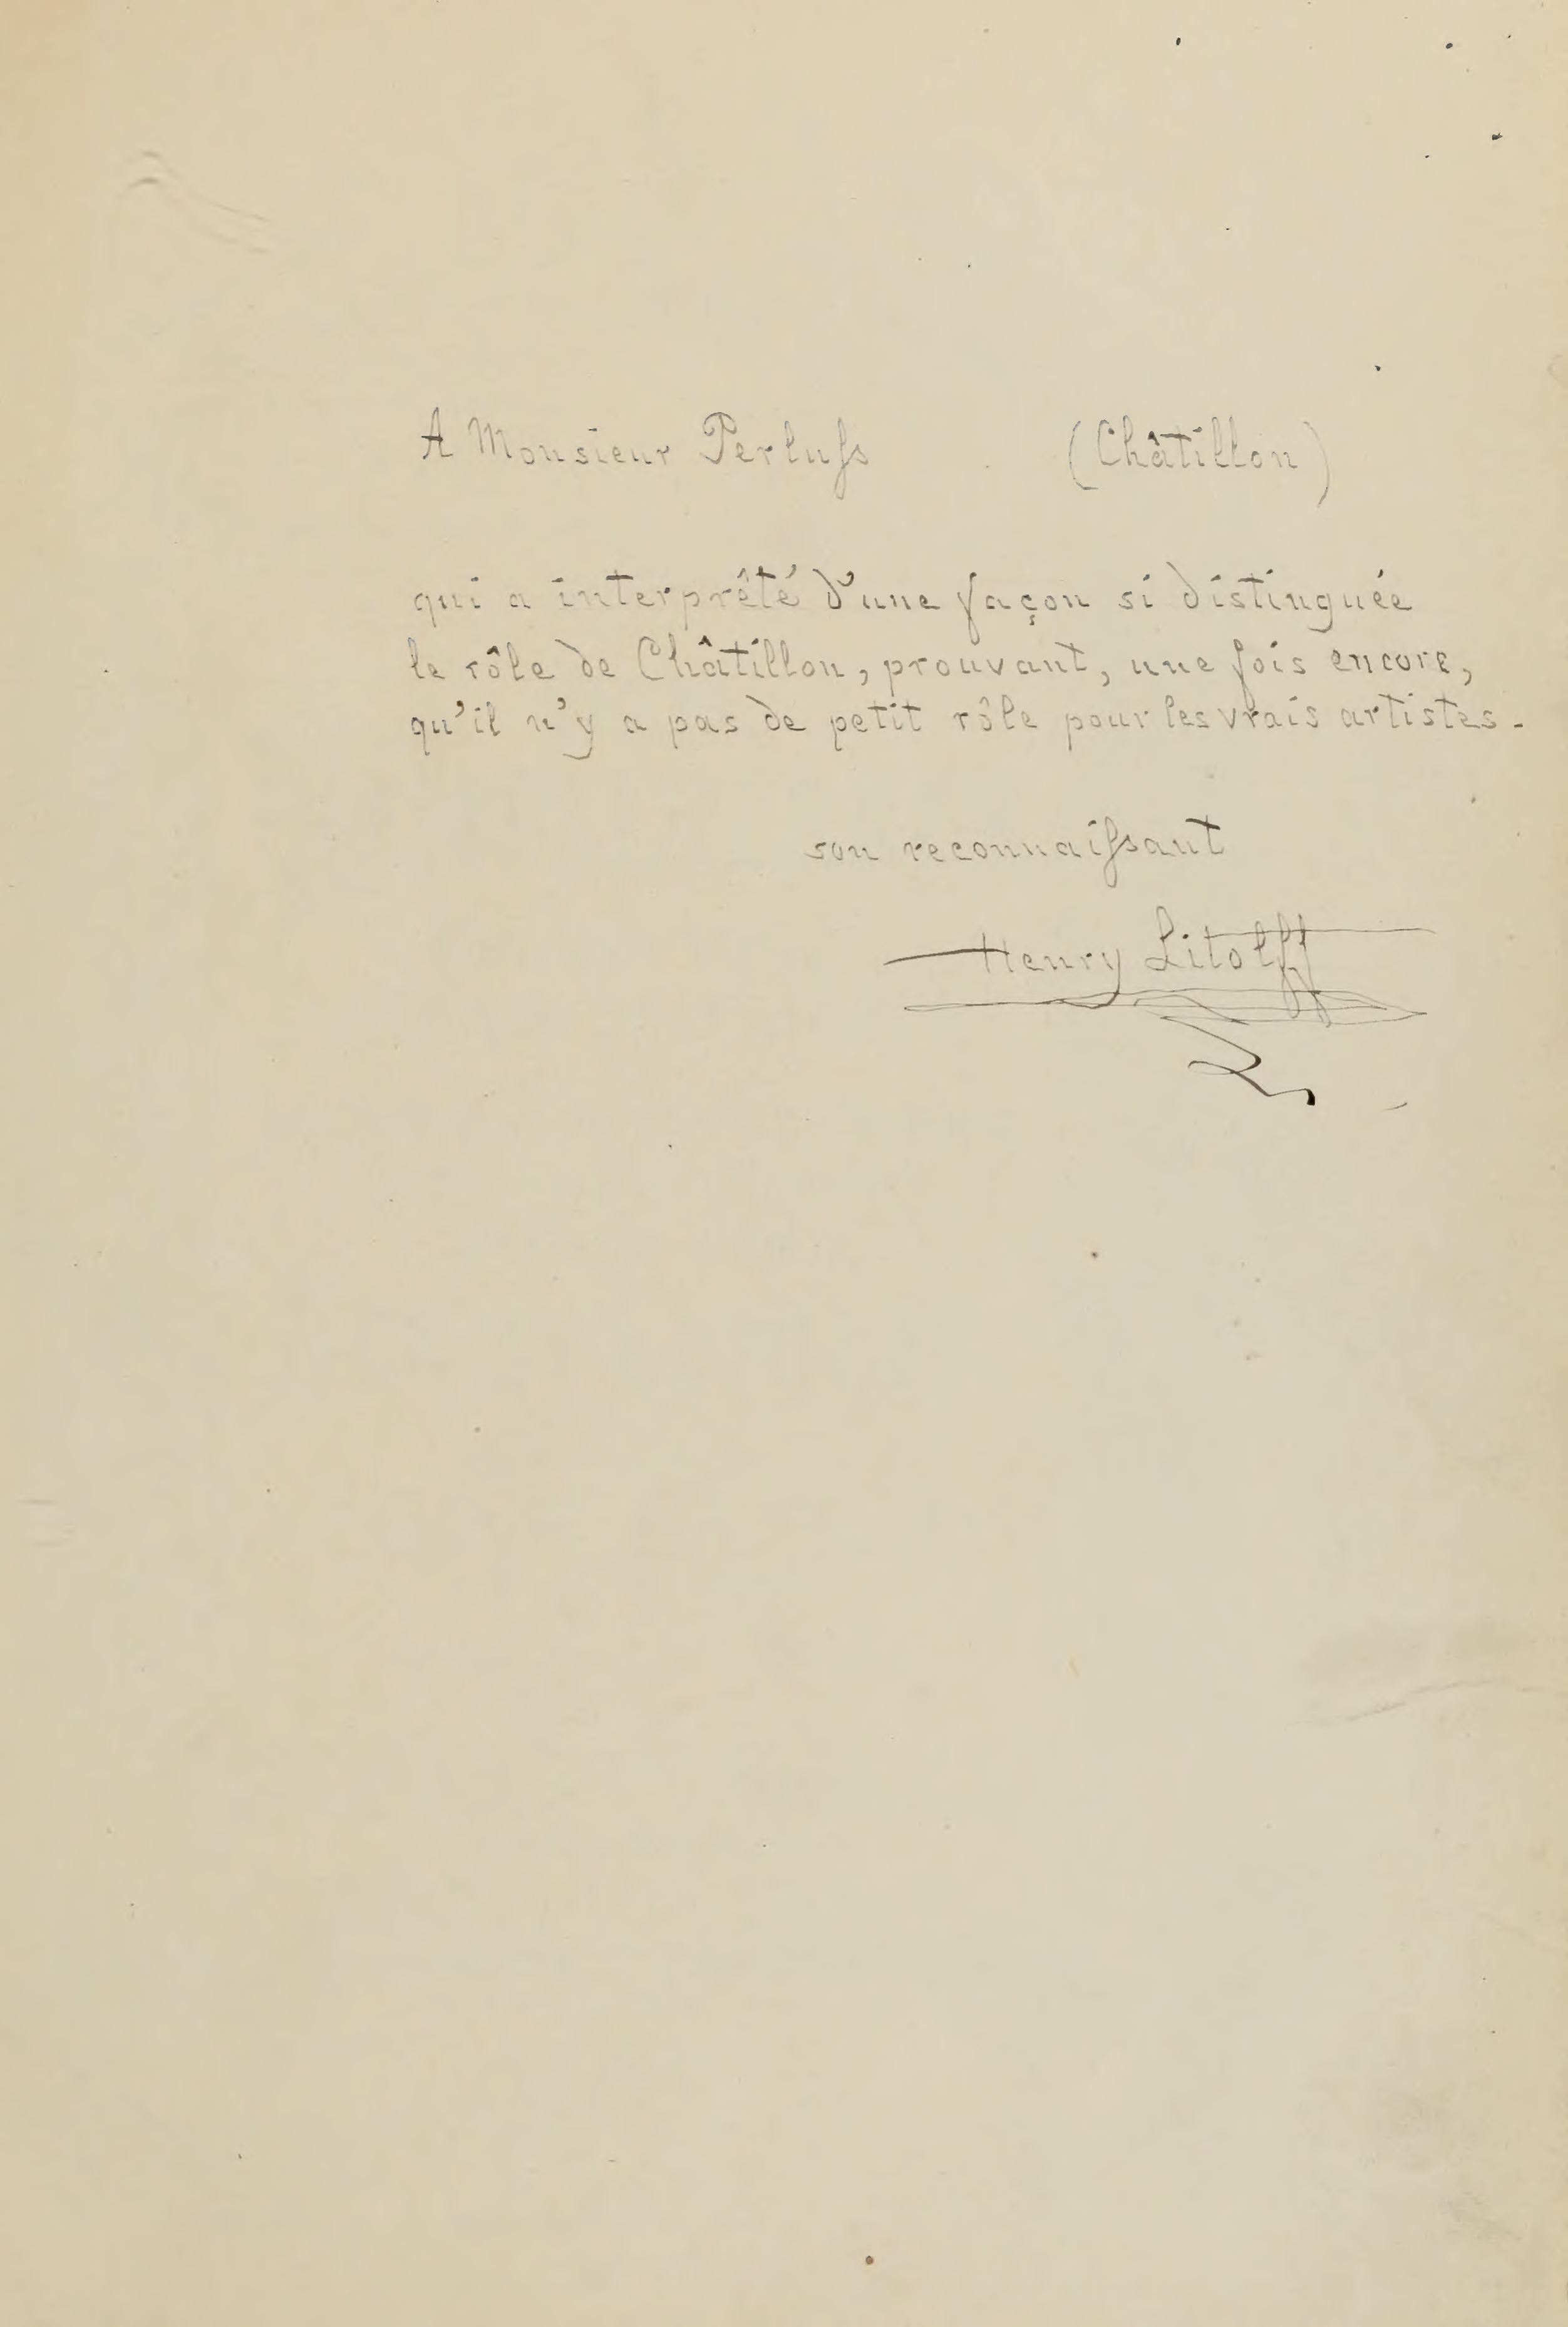 A Monsieur Perluſs (Châtillon)
qui a interprêté d'une façon si distinguée
le rôle de Châtillon, prouvant, une fois encore,
qu'il n'y a pas de petit rôle pour les vrais artistes.
son reconnaiſsant
Henry Litolff